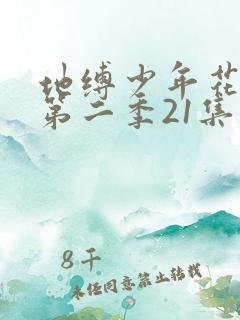 地缚少年花
第二季21集
8千
未经同意禁止转载